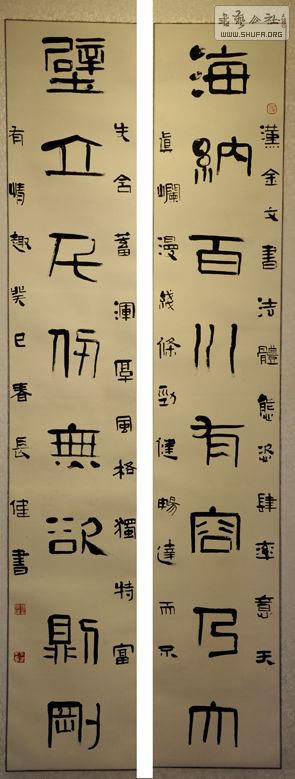 書藝公社
WWW.SHUFA.ORG
漢金文書法體態恣肆率意天
海納百川有容乃大
真爛漫綫條勁健暢達而不
失含蓄渾厚風格獨特富
壁立千仞無欲則剛
有情趣癸巳春長健書